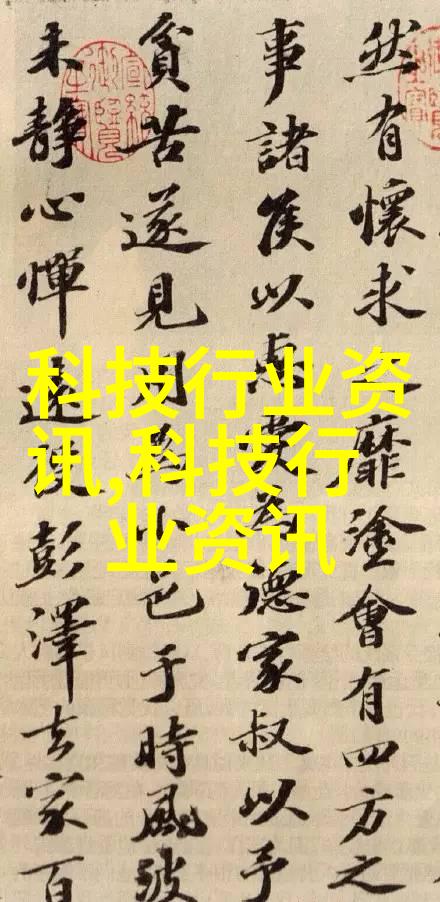 然有懷求靡塗會有四方之
事諸侯以惠愛為德家叔以予
貧苦遂見用為小邑于時風波
未靜心憚遠役彭澤去家百
科技行业资
讯,科技行
业资讯